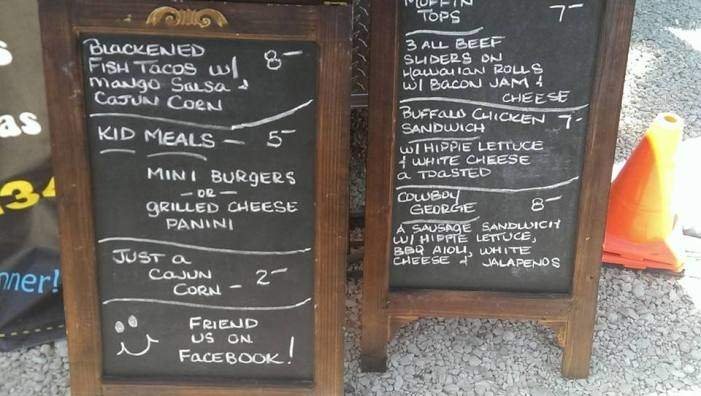 BLACKENED
FISH TACOS W/ 8-
MANGO SALSA &
CAJUN CORN
KID MEALS - 5-
MINI BURGERS
- OR -
GRILLED CHEESE
PANINI
JUST A
CAJUN
CORN - 2-
FRIEND
US ON
FACEBOOK!
MUFFIN
TOPS 7-
3 ALL BEEF
SLIDERS ON
HAWAIIAN ROLLS
W/ BACON JAM &
CHEESE
BUFFALO CHICKEN 7-
SANDWICH
W/ HIPPIE LETTUCE
& WHITE CHEESE
a TOASTED
COWBOY
GEORGIE 8-
A SAUSAGE SANDWICH
W/ HIPPIE LETTUCE,
BBQ AIOLI, WHITE
CHEESE & JALAPENOS
as
34
nner!